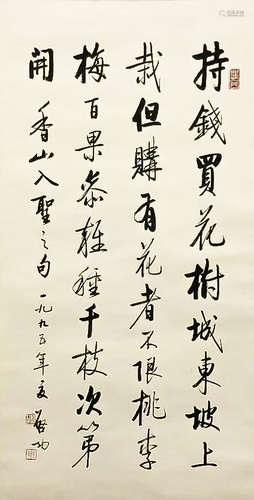 持錢買花樹城東坡上
栽但購有花者不限桃李
梅百果參雜種千枝次第
開 香山入聖之句 一九九五年夏 啓功